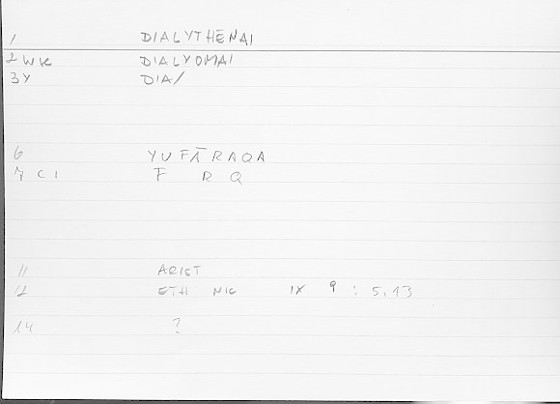 1 DIALYTHĒNAI
2 WK DIALYOMAI
3 Y DIA/
6 YUFĀRAQA
7 C I F R Q
11 ARIST
12 ETH NIC IX 9 : 5.13
14 ?